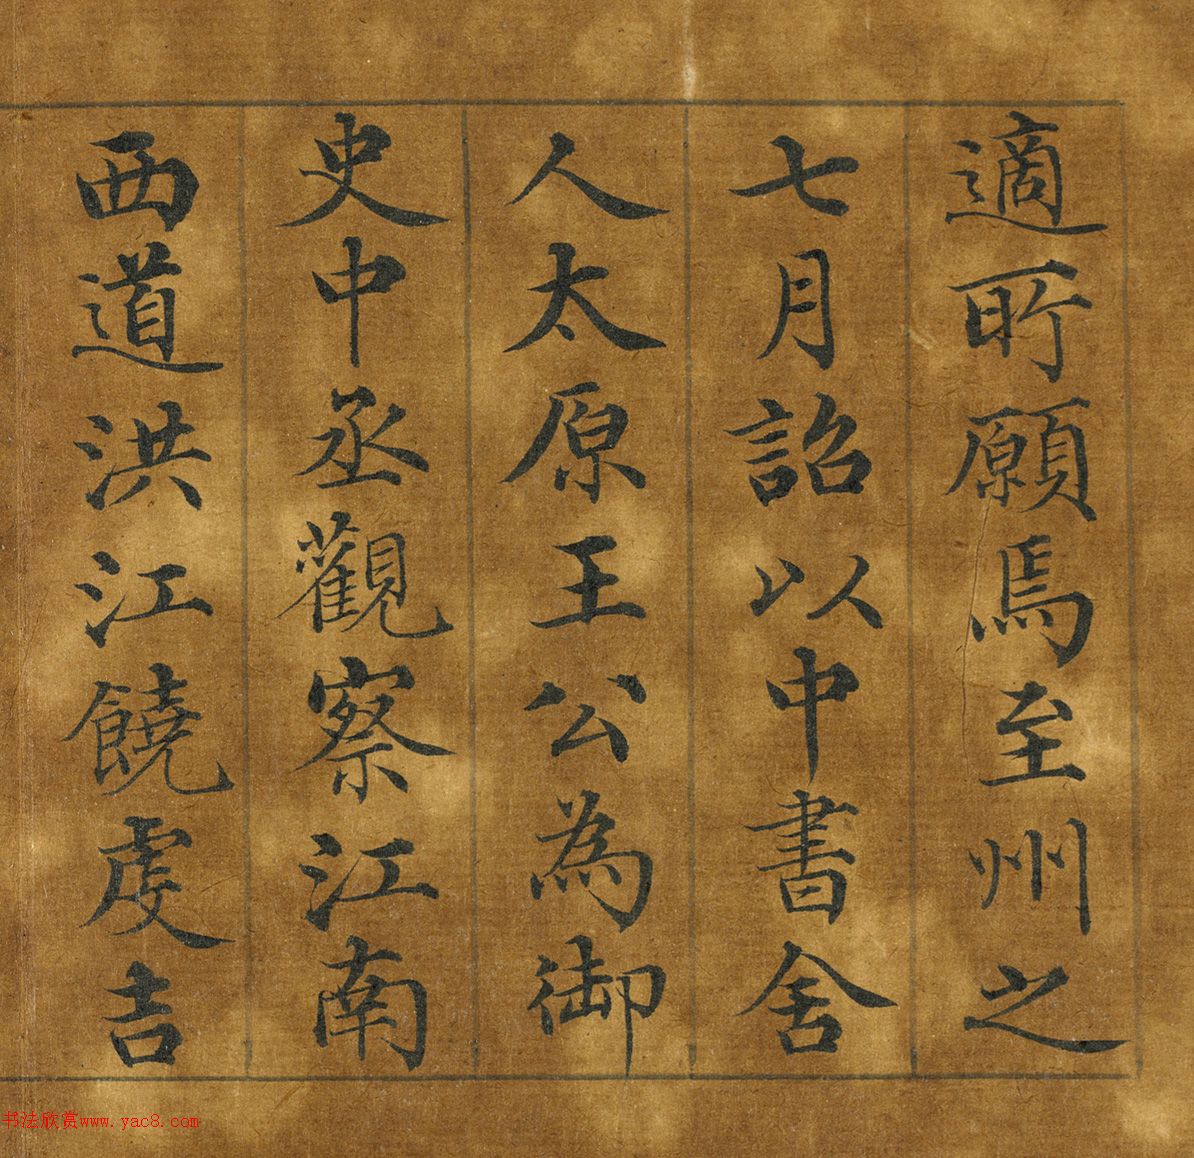 適所願焉至州之
七月詔以中書舍
人太原王公為御
史中丞觀察江南
西道洪江饒虔吉
书法欣赏www.yac8.com